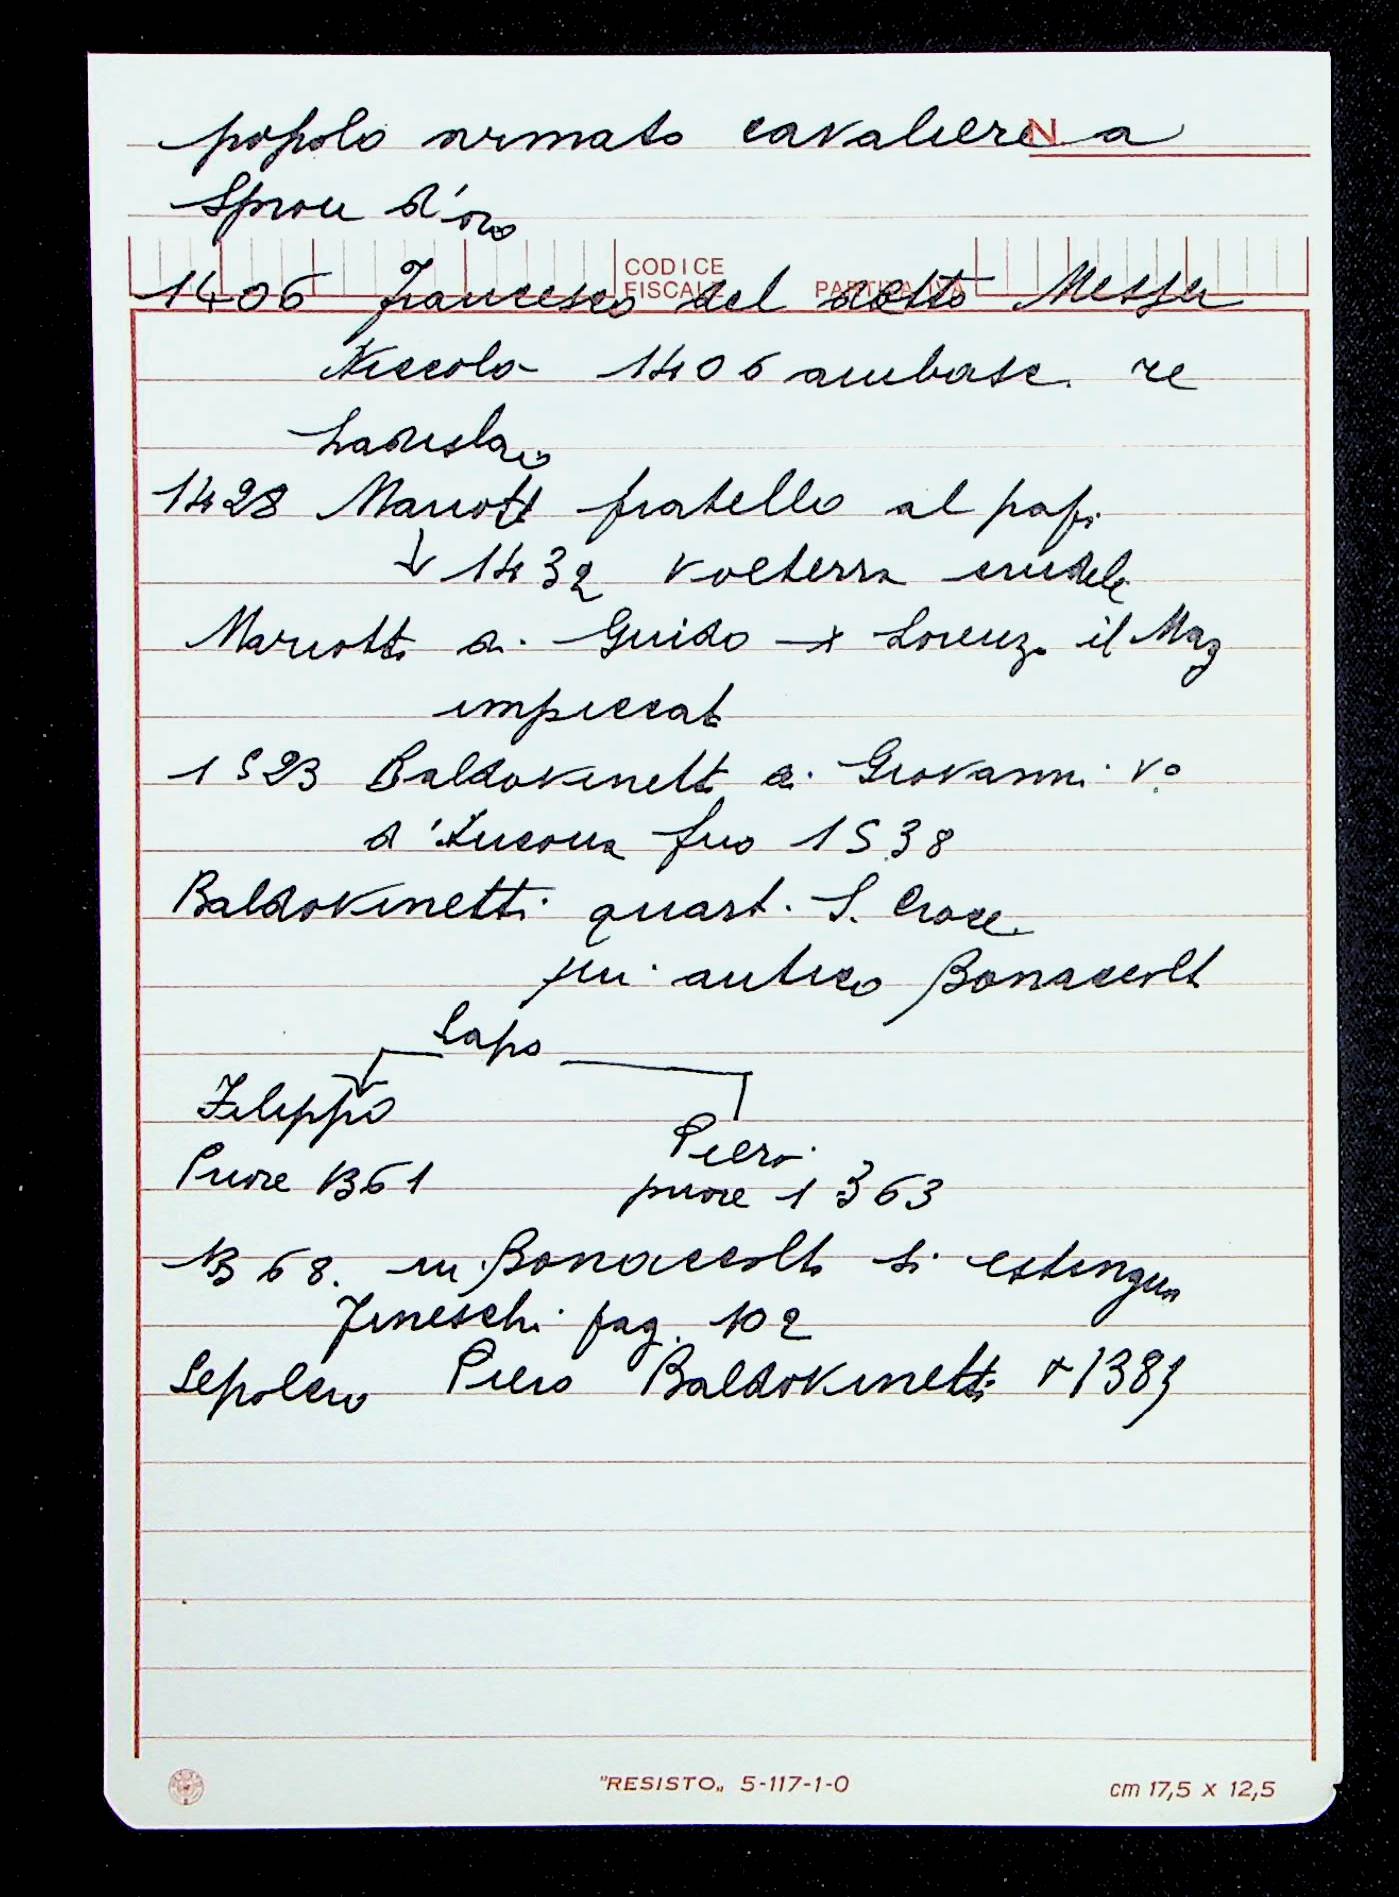 popolo armato cavaliere a
N
Sproni d'oro
CODICE
FISCALE PARTITA IVA
1406 Francesco del detto Messer
Niccolò 1406 ambasc. re
Ladislao
1428 Mariott fratello al pap.
1432 Volterra crudele
Mariotto di Guido → Lorenzo il Mag
impiccat
1523 Baldovinett di Giovanni V°
d'Ancona fino 1538
Baldovinetti quart. S. Croce
più antico Bonaccolt
Lapo
Filippo
Piero
Priore 1361
priore 1363
1368. in Bonaccolti si estingue
Fineschi pag. 102
Sepolcro Piero Baldovinetti +
"RESISTO" 5-117-1-0
cm 17,5 x 12,5